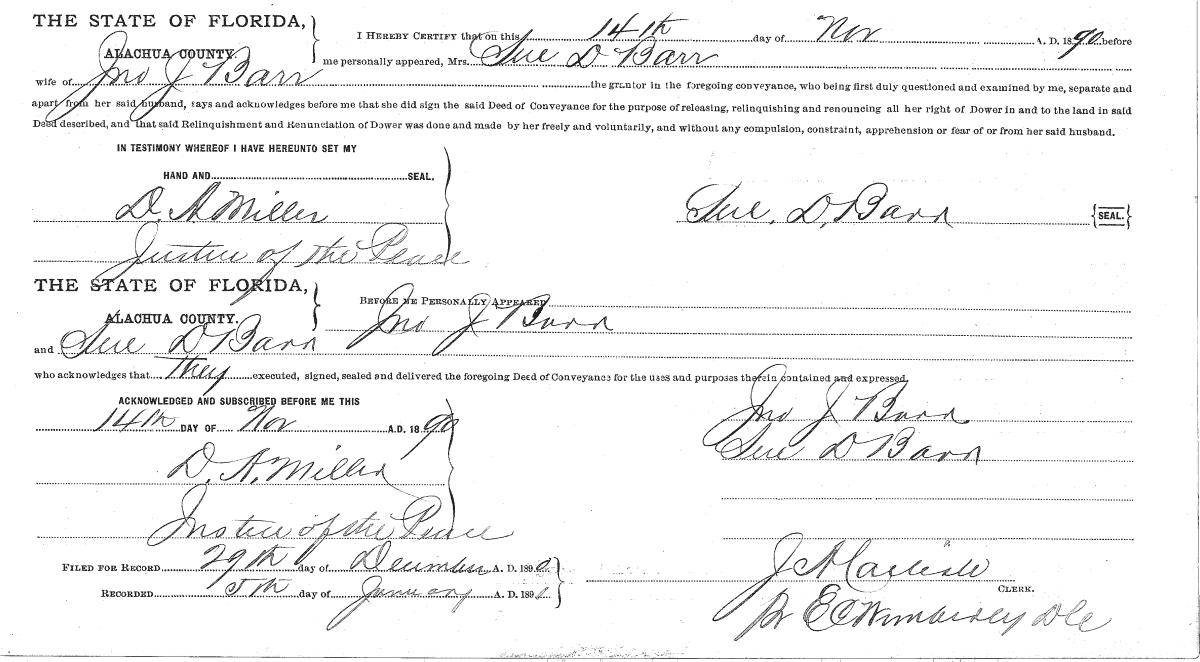 THE STATE OF FLORIDA,
ALACHUA COUNTY.
I HEREBY CERTIFY that on this 14th day of Nov A. D. 1890 before
me personally appeared, Mrs. Sue D Barr
wife of Jno J Barr the grantor in the foregoing conveyance, who being first duly questioned and examined by me, separate and
apart from her said husband, says and acknowledges before me that she did sign the said Deed of Conveyance for the purpose of releasing, relinquishing and renouncing all her right of Dower in and to the land in said
Deed described, and that said Relinquishment and Renunciation of Dower was done and made by her freely and voluntarily, and without any compulsion, constraint, apprehension or fear of or from her said husband.
IN TESTIMONY WHEREOF I HAVE HEREUNTO SET MY
HAND AND SEAL.
D. A Miller
Sue. D. Barr {SEAL.}
Justice of the Peace
THE STATE OF FLORIDA,
ALACHUA COUNTY.
BEFORE ME PERSONALLY APPEARED
Jno J Barr
and Sue D Barr
who acknowledges that They executed, signed, sealed and delivered the foregoing Deed of Conveyance for the uses and purposes therein contained and expressed.
ACKNOWLEDGED AND SUBSCRIBED BEFORE ME THIS
14th DAY OF Nov A.D. 1890
Jno J Barr
Sue D Barr
D. A. Miller
Justice of the Peace
FILED FOR RECORD 29th day of December A. D. 1890
RECORDED 5th day of January A. D. 1891
J A Carlisle
CLERK.
Pr E C Wimberley D C